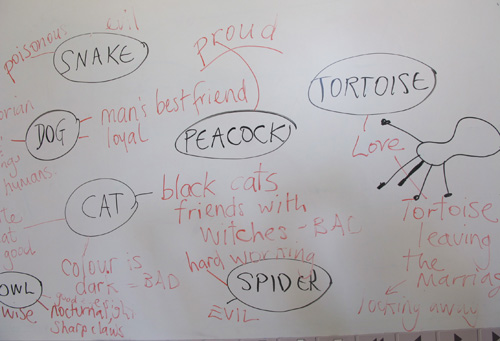 evil
poisonous
SNAKE
proud
TORTOISE
DOG
man's best friend
loyal
humans
PEACOCK
Love
CAT
black cats
friends with
witches - BAD
good
Tortoise
leaving
the Marriage
hard working
SPIDER
EVIL
colour is
dark = BAD
OWL
wise
nocturnal
sharp claws
away